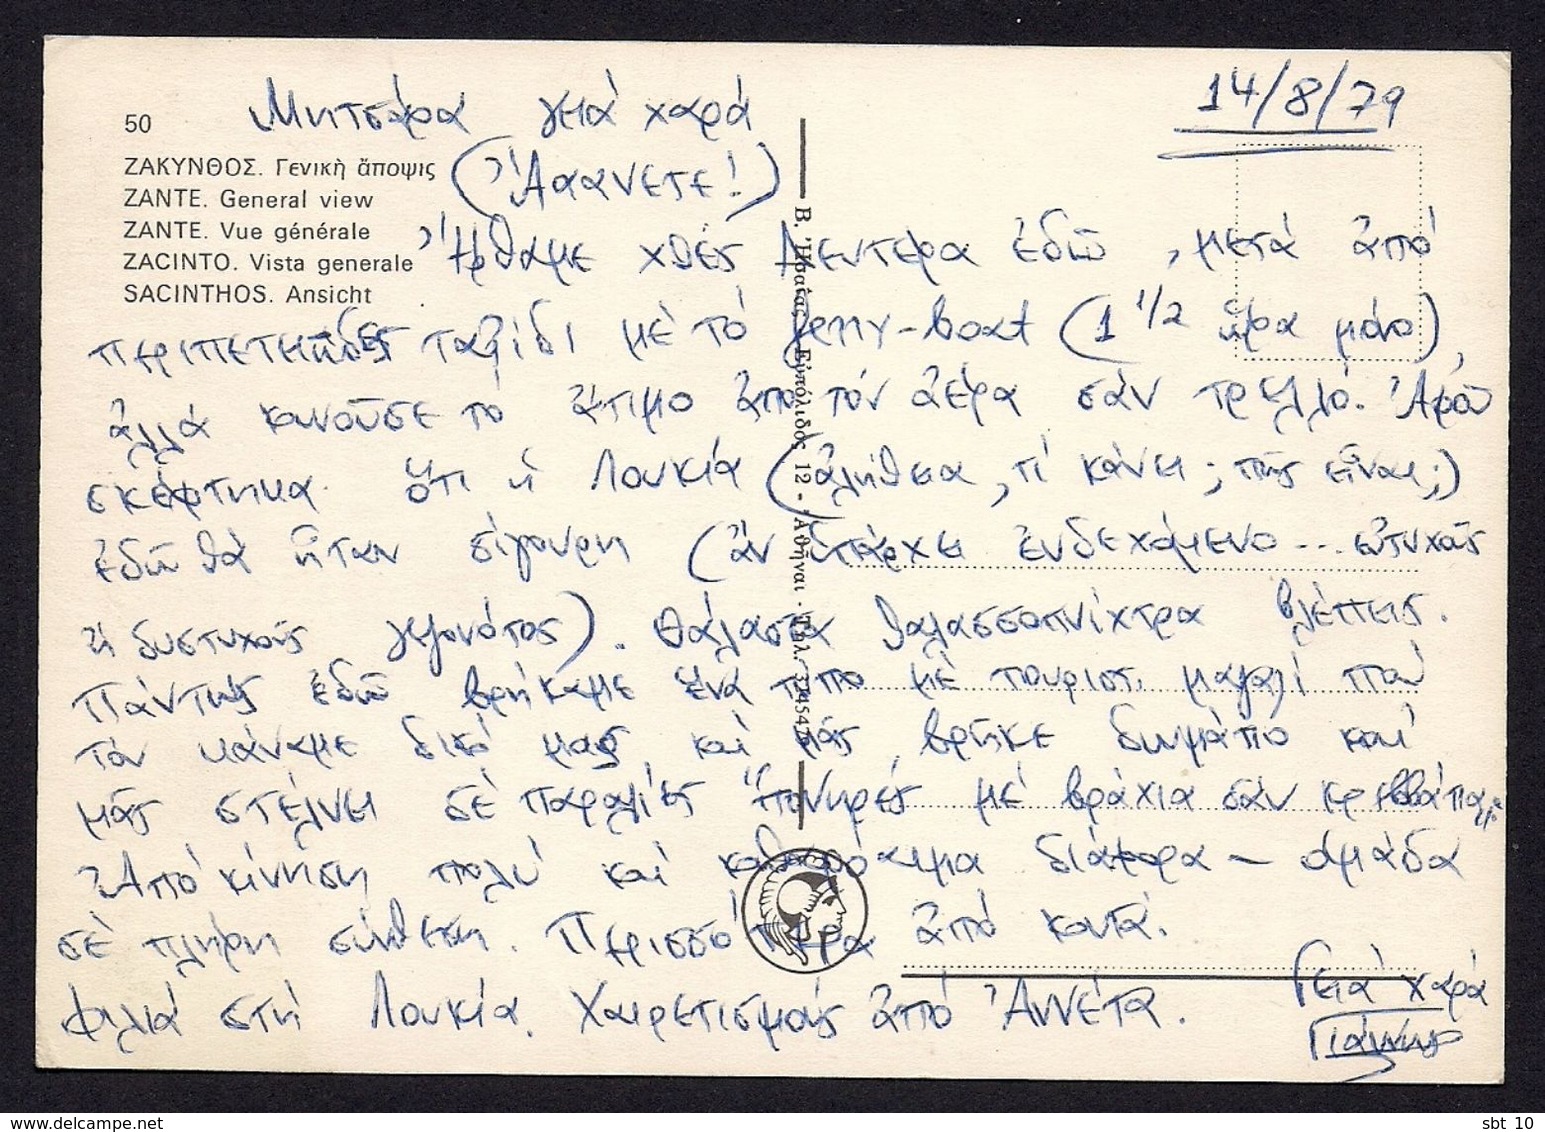 14/8/79
Μητσάρα γειά χαρά
50
ΖΑΚΥΝΘΟΣ. Γενικὴ ἄποψις
ZANTE. General view
ZANTE. Vue générale
ZACINTO. Vista generale
SACINTHOS. Ansicht
(Ἀαανετε!)
Ἤρθαμε χθές Δευτέρα ἐδῶ, μετά ἀπό
περιπετειῶδες ταξίδι μέ τό ferry-boat (1 1/2 ὥρα μόνο),
ἀλλά κουνοῦσε τό ἄτιμο ἀπό τόν ἀέρα σάν τρελλό. Ἀφοῦ
σκέφτηκα ὅτι ἡ Λουκία (ἀλήθεια, τί κάνει; πῶς εἶναι;)
ἐδῶ θά ἦταν σίγουρη (ἄν ὑπάρχει ἐνδεχόμενο... εὐτυχοῦς
ἤ δυστυχοῦς γεγονότος). Θάλασσα θαλασσοπνίχτρα βλέπεις.
Πάντως ἐδῶ βρήκαμε ἕνα τύπο μέ τουριστ. μαγαζί πού
τόν κάναμε δικό μας καί μᾶς βρῆκε δωμάτιο καί
μᾶς στέλνει σέ παραλίες πονηρές μέ βράχια σάν κρεββάτια
Ἀπό κίνηση πολύ καί καθαρόαιμα διάφορα – ὁμάδα
σέ πλήρη σύνθεση. Περισσότερα ἀπό κοντά.
Φιλιά στή Λουκία. Χαιρετισμούς ἀπό Ἀννέτα.
Γειά χαρά
Γιάννης
Β. Ἠσαΐας, Εὐπόλιδος 12 - Ἀθῆναι - Τηλ.
www.delcampe.net
sbt_10